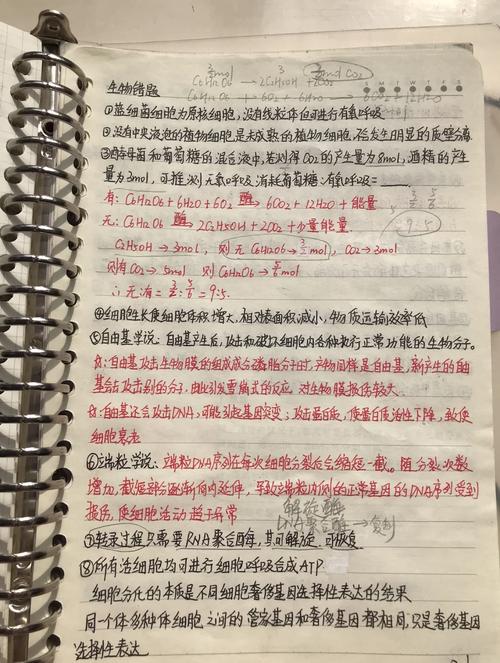 3/2mol 3 3mol CO₂
C₆H₁₂O₆ → 2C₂H₅OH + 2CO₂
生物错题 C₆H₁₂O₆ + 6O₂ + 6H₂O → 6CO₂ + 12H₂O
①蓝细菌细胞为原核细胞,没有线粒体也可进行有氧呼吸
②没有中央液泡的植物细胞是未成熟的植物细胞,不会发生明显的质壁分离
③酵母菌和葡萄糖的混合液中,若测得CO₂的产生量为8mol,酒精的产
量为3mol,可推测无氧呼吸消耗葡萄糖:有氧呼吸=____.
有:C₆H₁₂O₆ + 6H₂O + 6O₂ 酶→ 6CO₂ + 12H₂O + 能量 3/2:5/6
无:C₆H₁₂O₆ 酶→ 2C₂H₅OH + 2CO₂ + 少量能量 9:5
C₂H₅OH → 3mol,则无C₆H₁₂O₆ → 3/2mol,CO₂ → 3mol
则有CO₂ → 5mol 则C₆H₁₂O₆ → 5/6mol
∴无:有=3/2:5/6=9:5.
④细胞生长使细胞体积增大,相对表面积减小,物质运输效率低
⑤自由基学说:自由基产生后,攻击和破坏细胞内各种执行正常功能的生物分子。
自由基攻击生物膜的组成成分磷脂分子时,产物同样是自由基,新产生的自由
基会去攻击别的分子,由此引发雪崩式的反应,对生物膜损伤较大
自由基还会攻击DNA,可能引起基因突变;攻击蛋白质,使蛋白质活性下降,致使
细胞衰老
⑥端粒学说:端粒DNA序列在每次细胞分裂后会缩短一截。随分裂次数
增加,截短部分逐渐向内延伸,导致端粒内侧的正常基因的DNA序列受到
损伤,使细胞活动趋于异常
解旋酶
DNA聚合酶 → 复制
⑦转录过程只需要RNA聚合酶,其可解旋
⑧所有活细胞均可进行细胞呼吸合成ATP
细胞分化的本质是不同细胞奢侈基因选择性表达的结果
同一个体多种体细胞之间的管家基因和奢侈基因都相同,只是奢侈基因
选择性表达